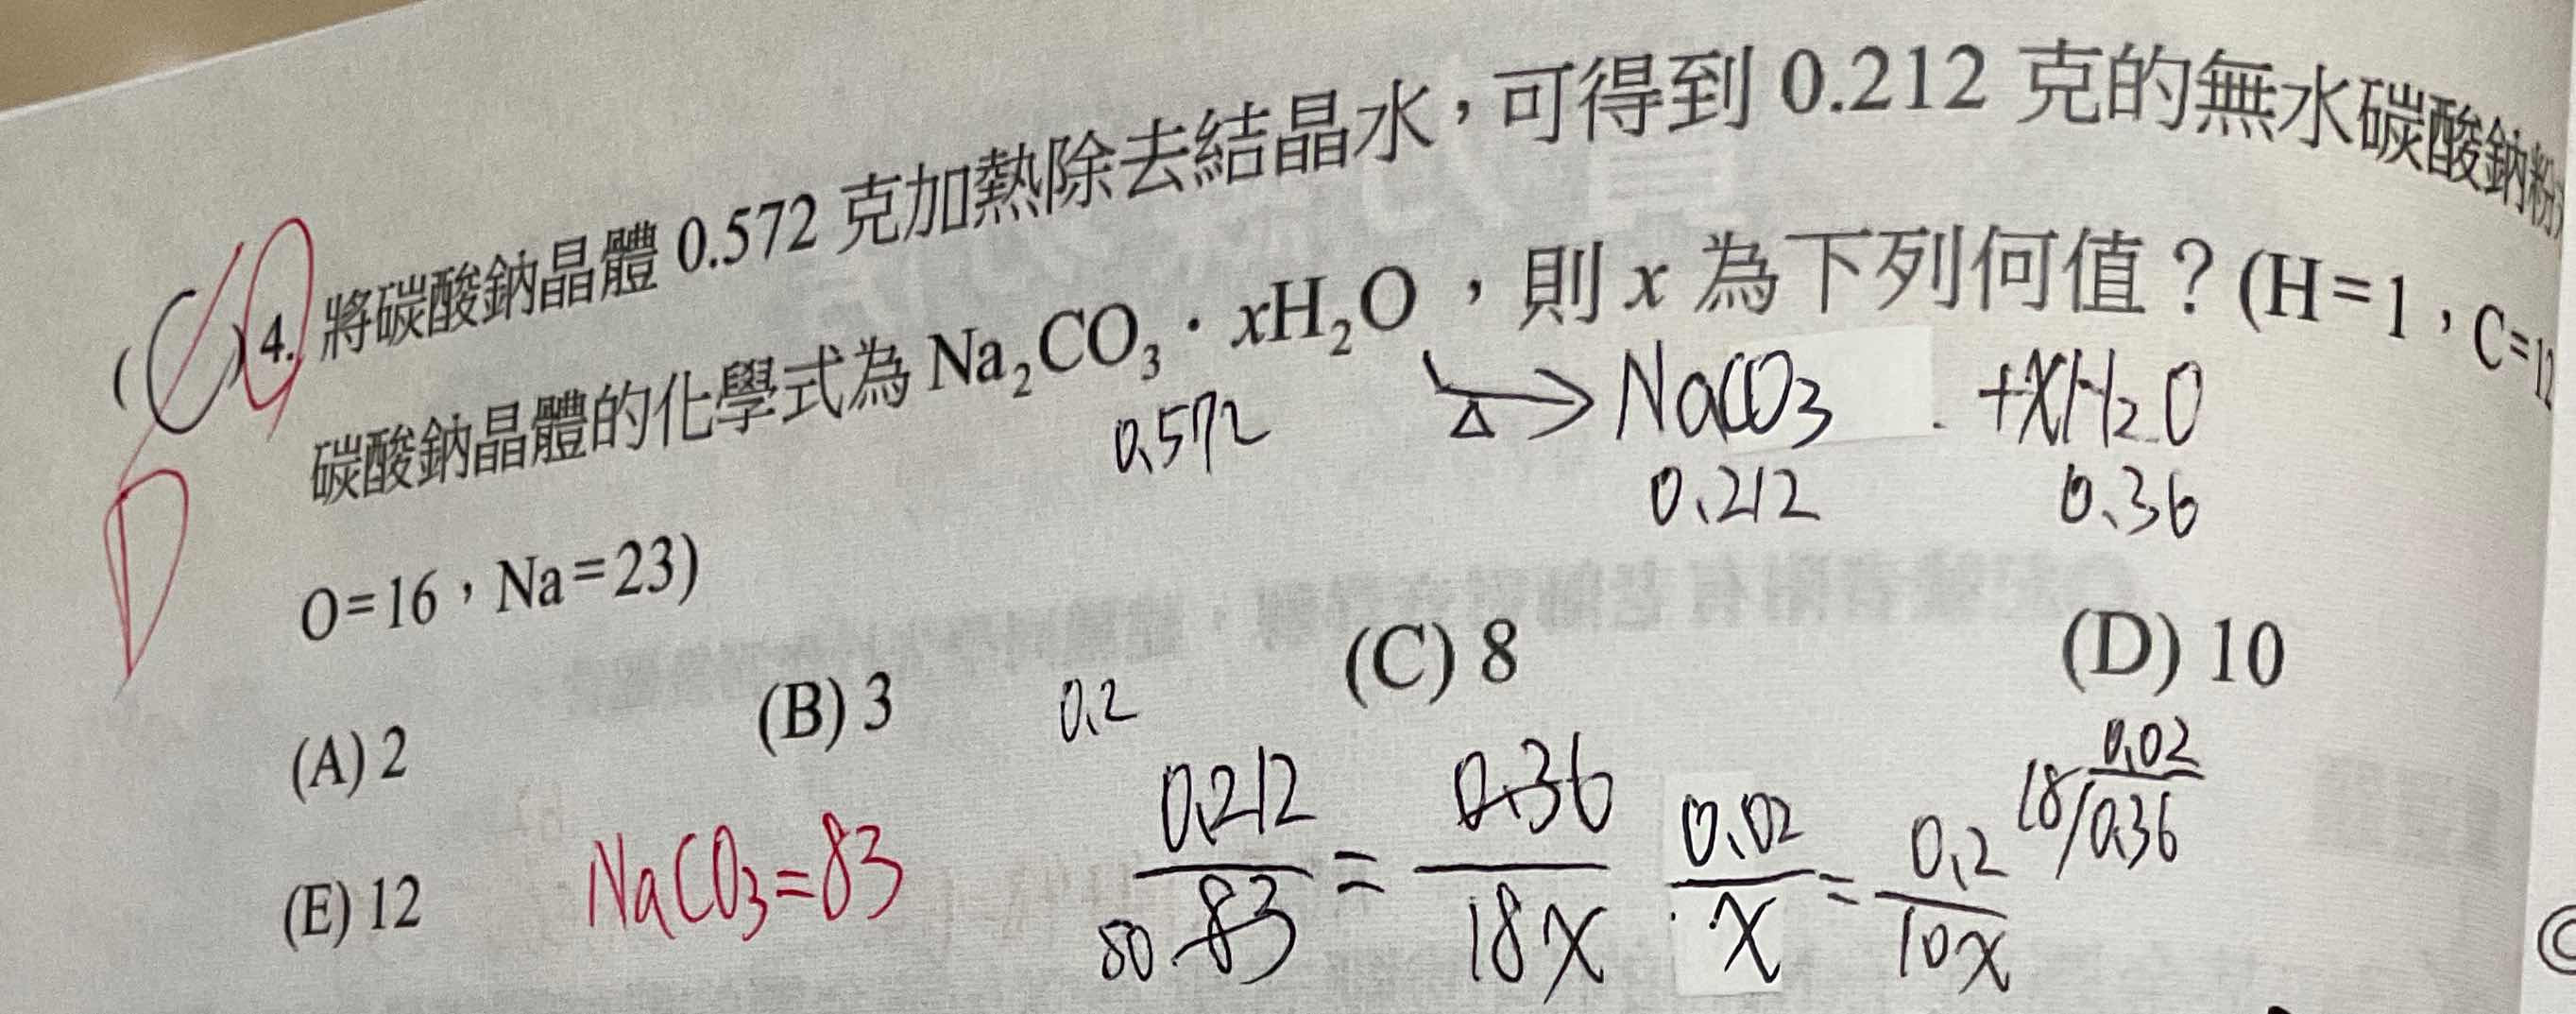 (C)4. 將碳酸鈉晶體 0.572 克加熱除去結晶水，可得到 0.212 克的無水碳酸鈉粉
D
碳酸鈉晶體的化學式為 Na₂CO₃．xH₂O ，則 x 為下列何值？(H=1，C=12
0.572 △→ NaCO₃ +xH₂O
0.212 0.36
O=16，Na=23)
(A) 2 (B) 3 (C) 8 (D) 10
(E) 12
NaCO₃=83
0.2
0.212/83 = 0.36/18x
80
0.02/x = 0.2/10x
0.02
18/0.36